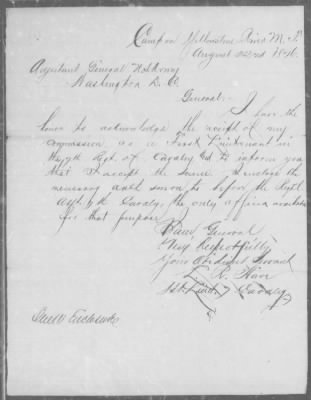 Camp on Yellowstone River M. T.
August 22nd 1876.
Adjutant General U.S. Army
Washington D. C.
General:-
I have the
honor to acknowledge the receipt of my
commission as a First Lieutenant in
the 7th Regt of Cavalry and to inform you
that I accept the same. I enclose the
necessary oath sworn to before the
7th Cavalry, the only officer available
for that purpose
I am General
Very Respectfully
Your Obedient Servant
L. R. Hare
1st Lieut. 7 Cavalry